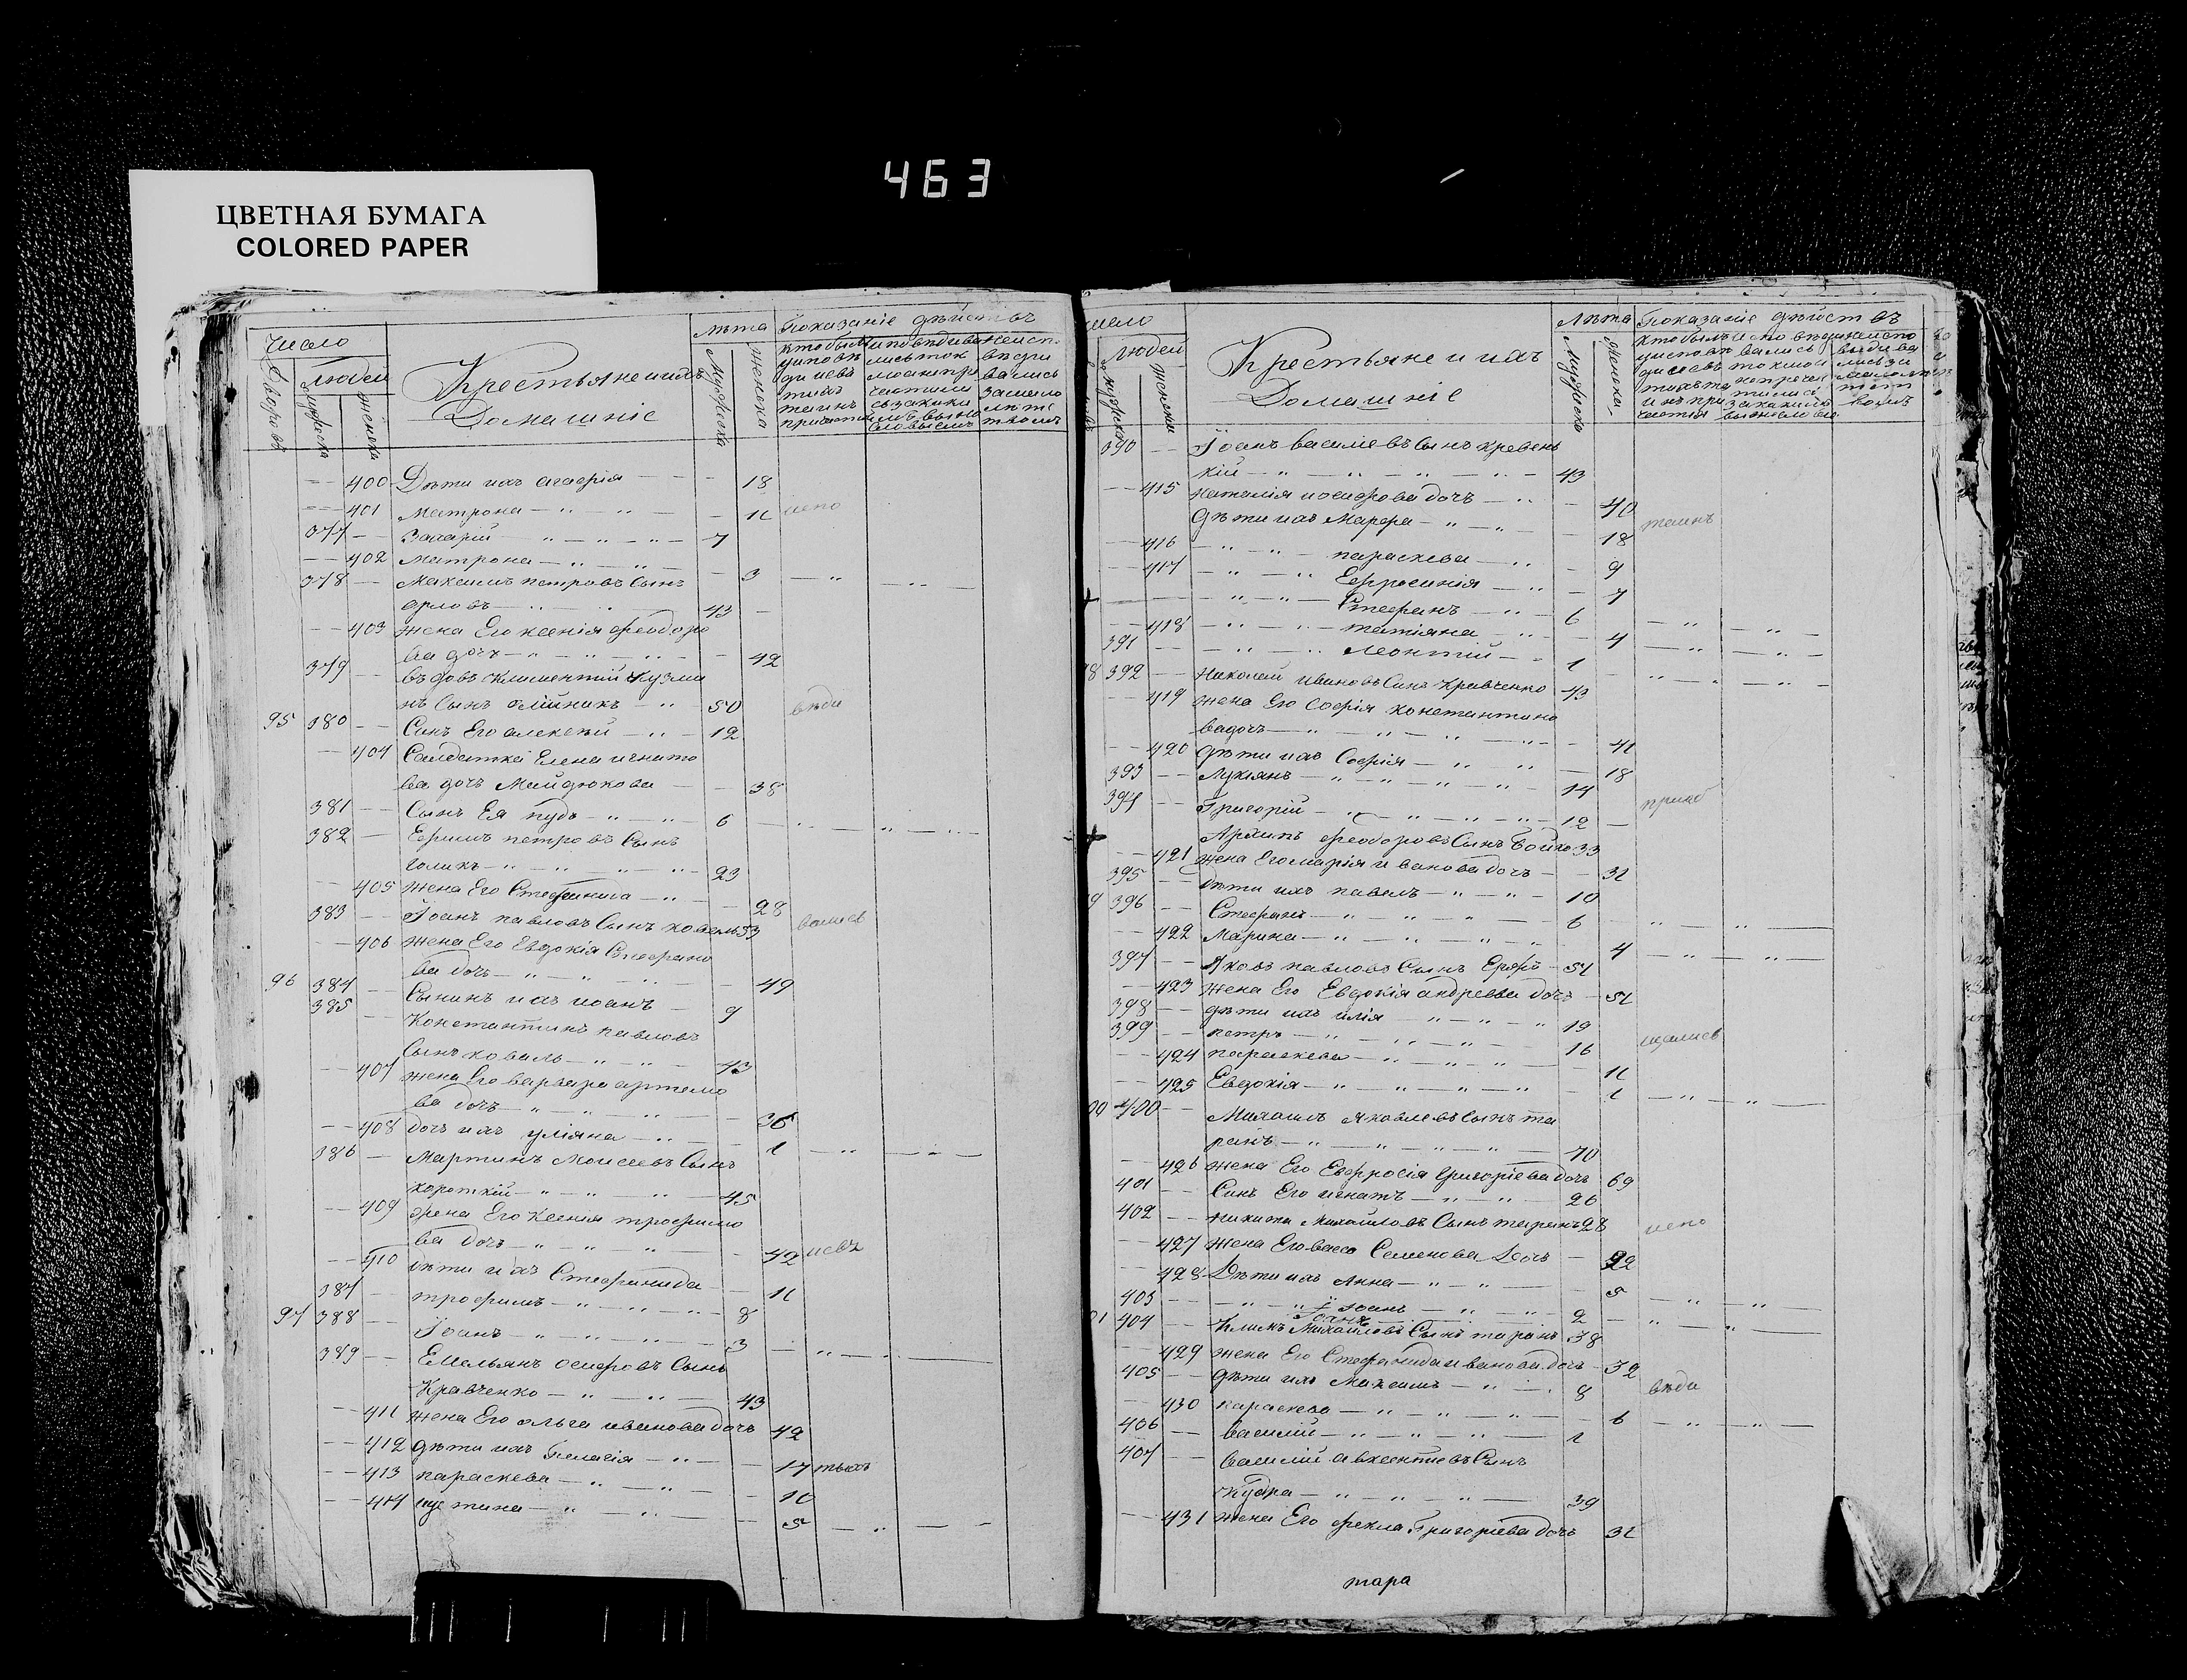 463
ЦВЕТНАЯ БУМАГА
COLORED PAPER
Число
Дворовъ
Людей
Мужеска
Женска
Крестьяне и ихъ
Домашніе
Лѣта
Мужеска
Женска
Показаніе дѣйствъ
400 Дѣти ихъ Агафія 18
401 Матрона 11 испо
377 Захарій 7
402 Матрона 3
378 Максимъ петровъ Сынъ
орловъ 43
403 жена Его ксенія феодоро
ва дочь 42
379 вдовъ Климентій Кузми
нъ Сынъ олійникъ 50 вѣди
95 380 Сынъ Его алексѣй 12
404 Салдатка Елена игнато
ва дочь 38
381 Сынъ Ея 6
382 Ефимъ петровъ Сынъ
голикъ 23
405 жена Его Стефанида 28
383 Іоанъ павловъ Сынъ коваль 53 вались
406 жена Его Евдокія Стефано
ва дочь 49
96 384 Сынъ ихъ иоанъ 9
385 Константинъ павловъ
Сынъ коваль 43
407 жена Его варвара артемо
ва дочь 36
408 дочь ихъ уліяна 1
386 Мартинъ Моисеевъ Сынъ
короткій 45
409 жена Его Ксенія трофимо
ва дочь 42
410 дѣти ихъ Стефанида 11
387 трофимъ 8
97 388 Іоанъ 3
389 Емельянъ осиповъ Сынъ
Кравченко 43
411 жена Его ольга иванова дочь 42
412 дѣти ихъ Пелагія 17
413 параскева 10
414 иустина 5
число
Людей
мужеска
женска
Крестьяне и ихъ
Домашніе
Лѣта
Мужеска
Женска
Показаніе дѣйствъ
390 Іоанъ василіевъ Сынъ кревень
кій 43
415 наталія иосифова дочь 40
дѣти ихъ Марфа 18 таинъ
416 параскева 9
417 Ефросинія 7
Стефанъ 6
418 татіяна 4
391 Леонтій 1
98 392 Николай ивановъ Сынъ Кравченко 43
419 жена Его Софія константино
ва дочь 41
420 дѣти ихъ Софія 18
393 Лукіянъ 14
394 Григорій 12
Архипъ феодоровъ Сынъ Бойко 33
421 жена Его марія иванова дочь 31
395 дѣти ихъ павелъ 10
99 396 Стефанъ 6
422 Марина 4
397 Яковъ павловъ Сынъ 51
423 жена Его Евдокія андреева дочь 51
398 дѣти ихъ илія 19
399 петръ 16 щались
424 параскева 11
425 Евдокія 1
100 400 Михаилъ Яковлевъ Сынъ та
ранъ 70
426 жена Его Евфросія григоріева дочь 69
401 Сынъ Его игнатъ 26
402 никита Михайловъ Сынъ таранъ 28 испо
427 жена Его васса Семенова Дочь 22
428 Дѣти ихъ Анна 5
403 Іоанъ 2
101 404 Климъ Михайловъ Сынъ таранъ 38
429 жена Его Стефанида иванова дочь 32
405 дѣти ихъ Максимъ 8 вѣди
430 параскева 6
406 василій 1
407 василій авксентіевъ Сынъ
Кудра 39
431 жена Его фекла Григоріева дочь 31
тара